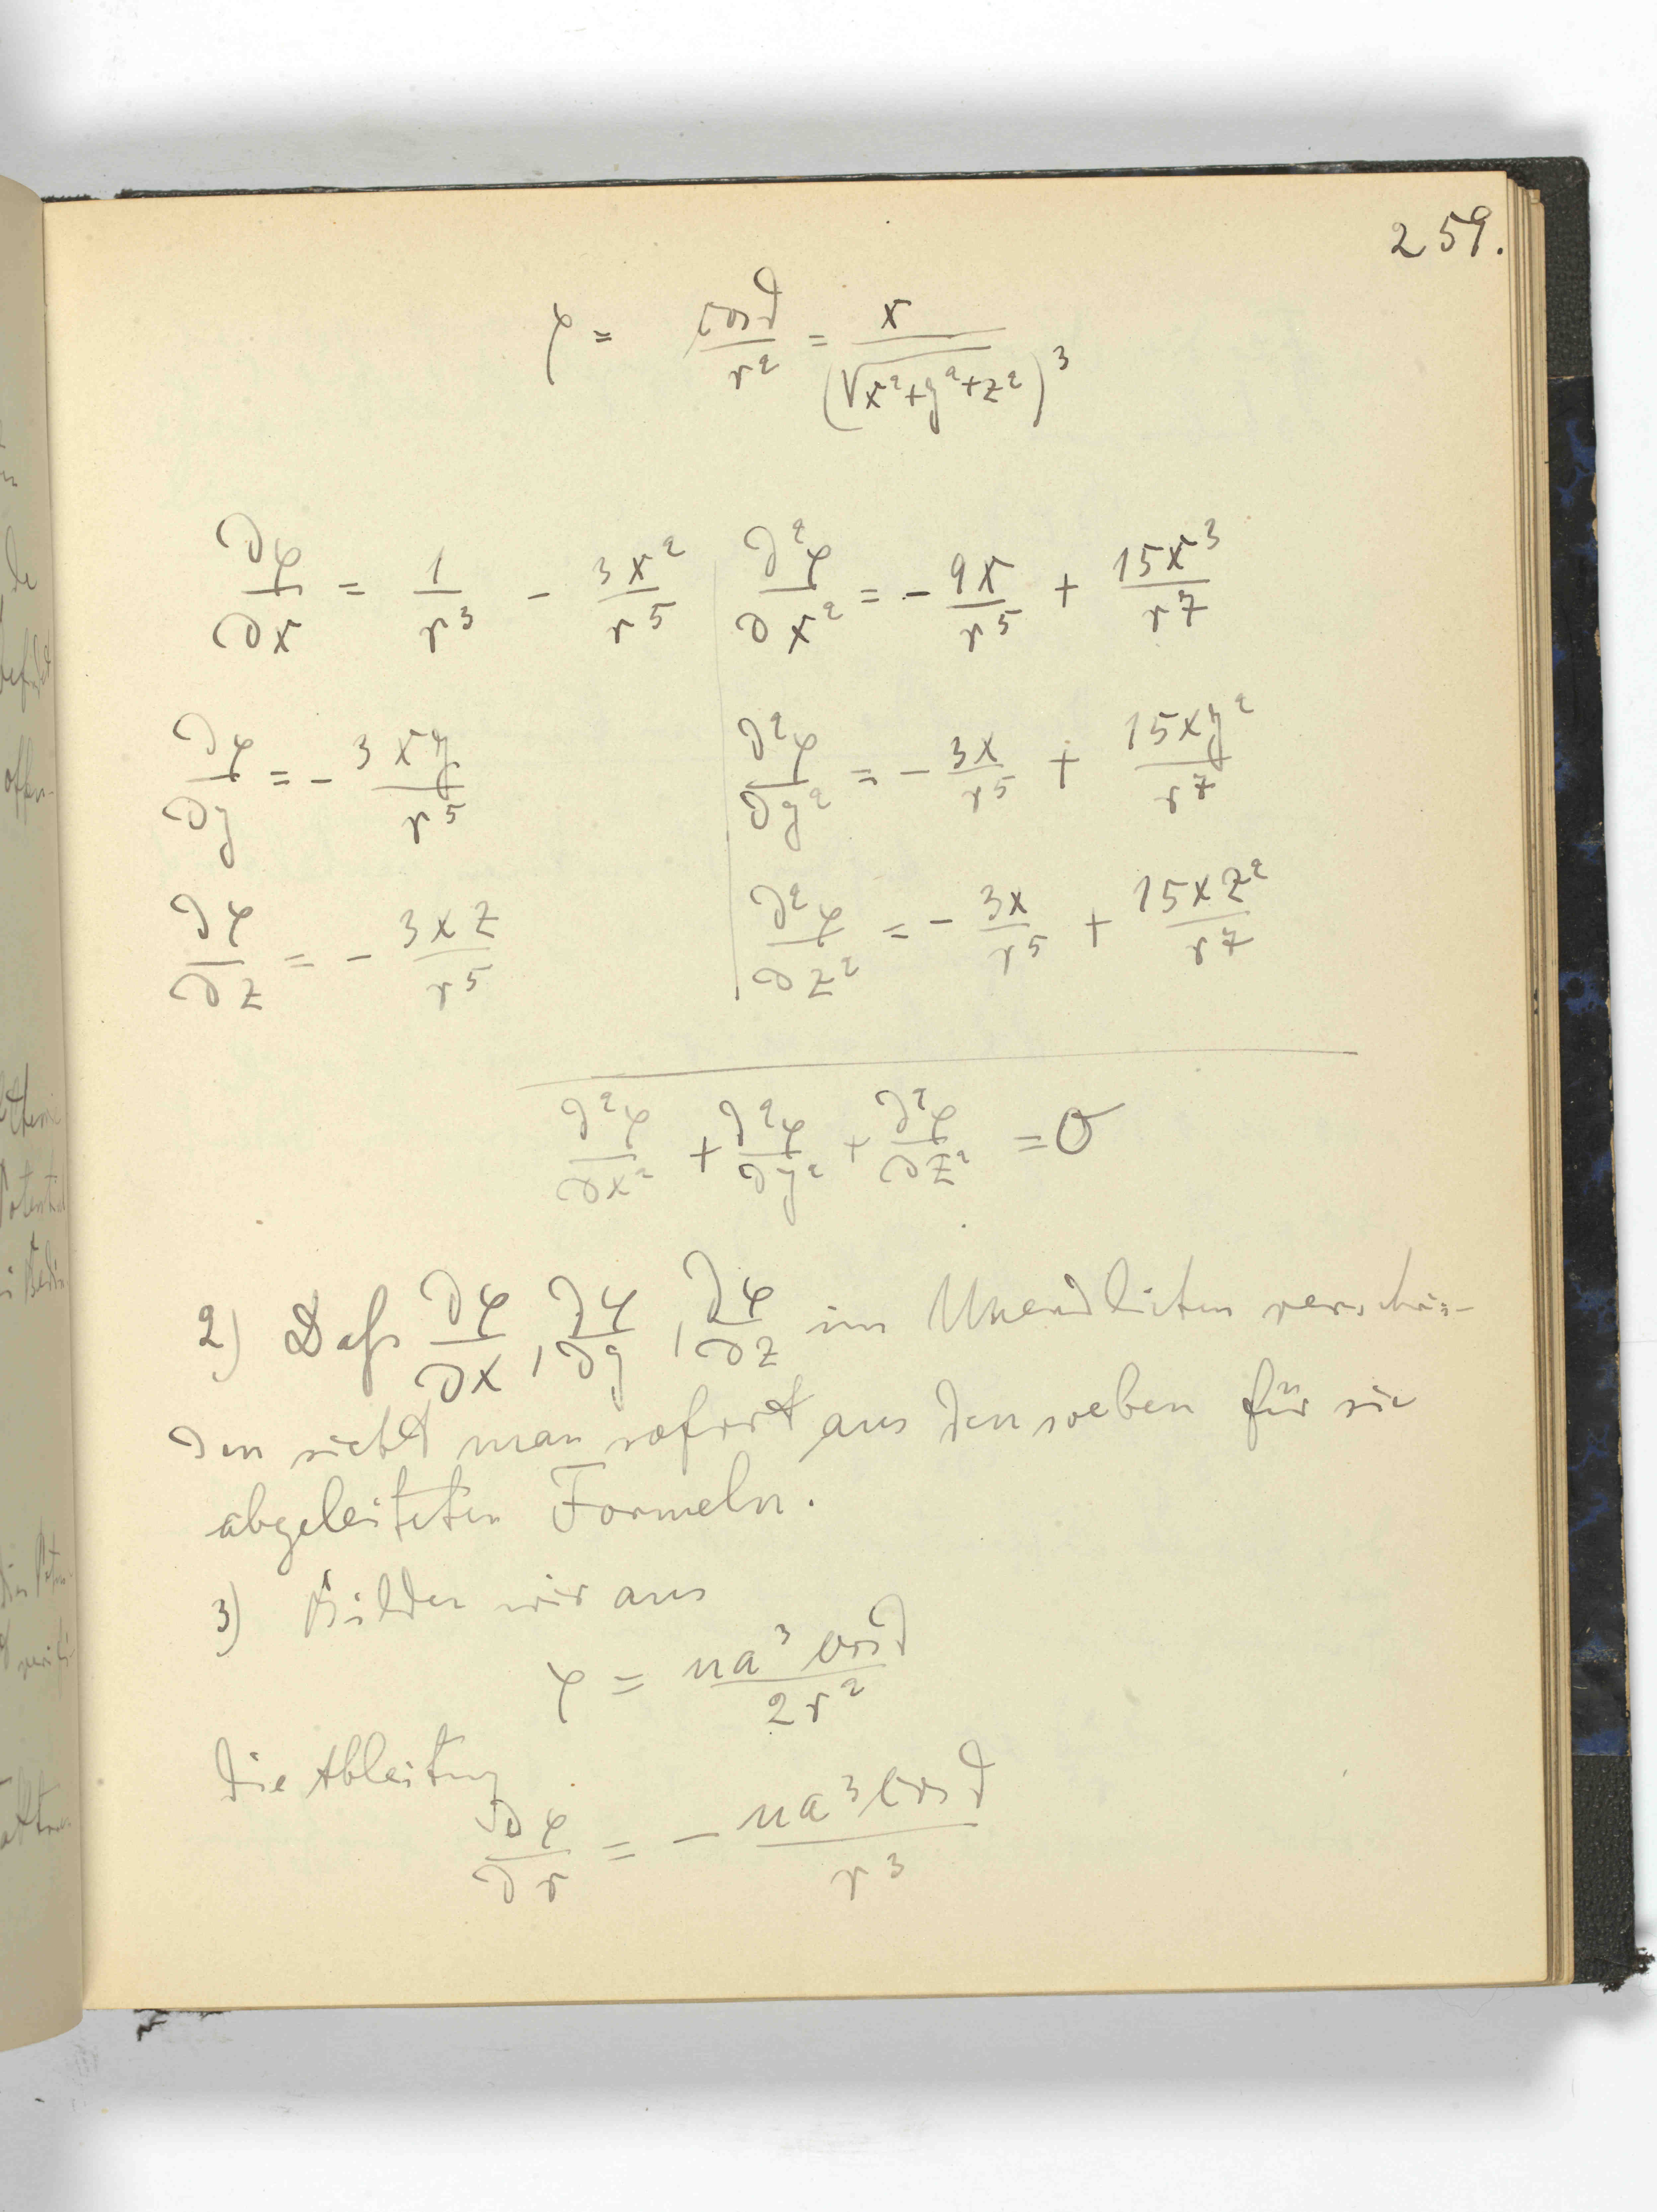 259.
φ = cosϑ/r² = x/(√x²+y²+z²)³
∂φ/∂x = 1/r³ - 3x²/r⁵ | ∂²φ/∂x² = - 9x/r⁵ + 15x³/r⁷
∂φ/∂y = - 3xy/r⁵ | ∂²φ/∂y² = - 3x/r⁵ + 15xy²/r⁷
∂φ/∂z = - 3xz/r⁵ | ∂²φ/∂z² = - 3x/r⁵ + 15xz²/r⁷
∂²φ/∂x² + ∂²φ/∂y² + ∂²φ/∂z² = 0
2) Daß ∂φ/∂x, ∂φ/∂y, ∂φ/∂z im Unendlichen verschwin-
den sieht man sofort aus den soeben für sie
abgeleiteten Formeln.
3) Bilden wir aus
φ = na³ cosϑ/2r²
die Ableitung
∂φ/∂r = - na³ cosϑ/r³